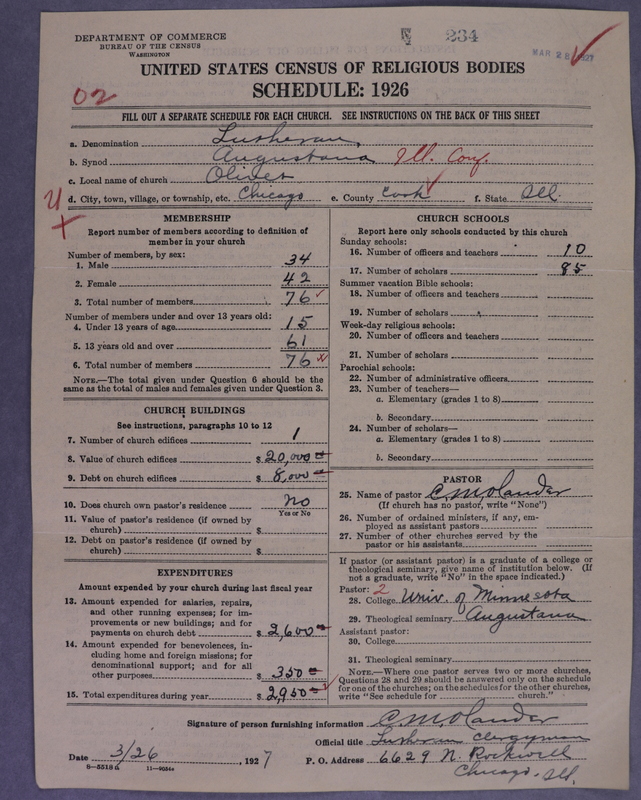 DEPARTMENT OF COMMERCE
BUREAU OF THE CENSUS
WASHINGTON
234
MAR 28 1927
UNITED STATES CENSUS OF RELIGIOUS BODIES
SCHEDULE: 1926
02
FILL OUT A SEPARATE SCHEDULE FOR EACH CHURCH. SEE INSTRUCTIONS ON THE BACK OF THIS SHEET
a. Denomination Lutheran
b. Synod Augustana Ill. Conf.
c. Local name of church Olivet
d. City, town, village, or township, etc. Chicago e. County Cook f. State Ill.
MEMBERSHIP
Report number of members according to definition of
member in your church
Number of members, by sex:
1. Male 34
2. Female 42
3. Total number of members 76
Number of members under and over 13 years old:
4. Under 13 years of age 15
5. 13 years old and over 61
6. Total number of members 76
NOTE.—The total given under Question 6 should be the
same as the total of males and females given under Question 3.
CHURCH BUILDINGS
See instructions, paragraphs 10 to 12
7. Number of church edifices 1
8. Value of church edifices $ 20,000
9. Debt on church edifices $ 8,000
10. Does church own pastor's residence No
Yes or No
11. Value of pastor's residence (if owned by
church) $
12. Debt on pastor's residence (if owned by
church) $
EXPENDITURES
Amount expended by your church during last fiscal year
13. Amount expended for salaries, repairs,
and other running expenses; for im-
provements or new buildings; and for
payments on church debt $ 2,600
14. Amount expended for benevolences, in-
cluding home and foreign missions; for
denominational support; and for all
other purposes $ 350
15. Total expenditures during year $ 2,950
CHURCH SCHOOLS
Report here only schools conducted by this church
Sunday schools:
16. Number of officers and teachers 10
17. Number of scholars 85
Summer vacation Bible schools:
18. Number of officers and teachers
19. Number of scholars
Week-day religious schools:
20. Number of officers and teachers
21. Number of scholars
Parochial schools:
22. Number of administrative officers
23. Number of teachers—
a. Elementary (grades 1 to 8)
b. Secondary
24. Number of scholars—
a. Elementary (grades 1 to 8)
b. Secondary
PASTOR
25. Name of pastor C. M. Olander
(If church has no pastor, write "None")
26. Number of ordained ministers, if any, em-
ployed as assistant pastors
27. Number of other churches served by the
pastor or his assistants
If pastor (or assistant pastor) is a graduate of a college or
theological seminary, give name of institution below. (If
not a graduate, write "No" in the space indicated.)
Pastor: 2
28. College Univ. of Minnesota
29. Theological seminary Augustana
Assistant pastor:
30. College
31. Theological seminary
NOTE.—Where one pastor serves two or more churches,
Questions 28 and 29 should be answered only on the schedule
for one of the churches; on the schedules for the other churches,
write "See schedule for church."
Signature of person furnishing information C. M. Olander
Official title Lutheran Clergyman
Date 3/26, 1927 P. O. Address 6629 N. Rockwell
8—5518a 11—9034a
Chicago, Ill.